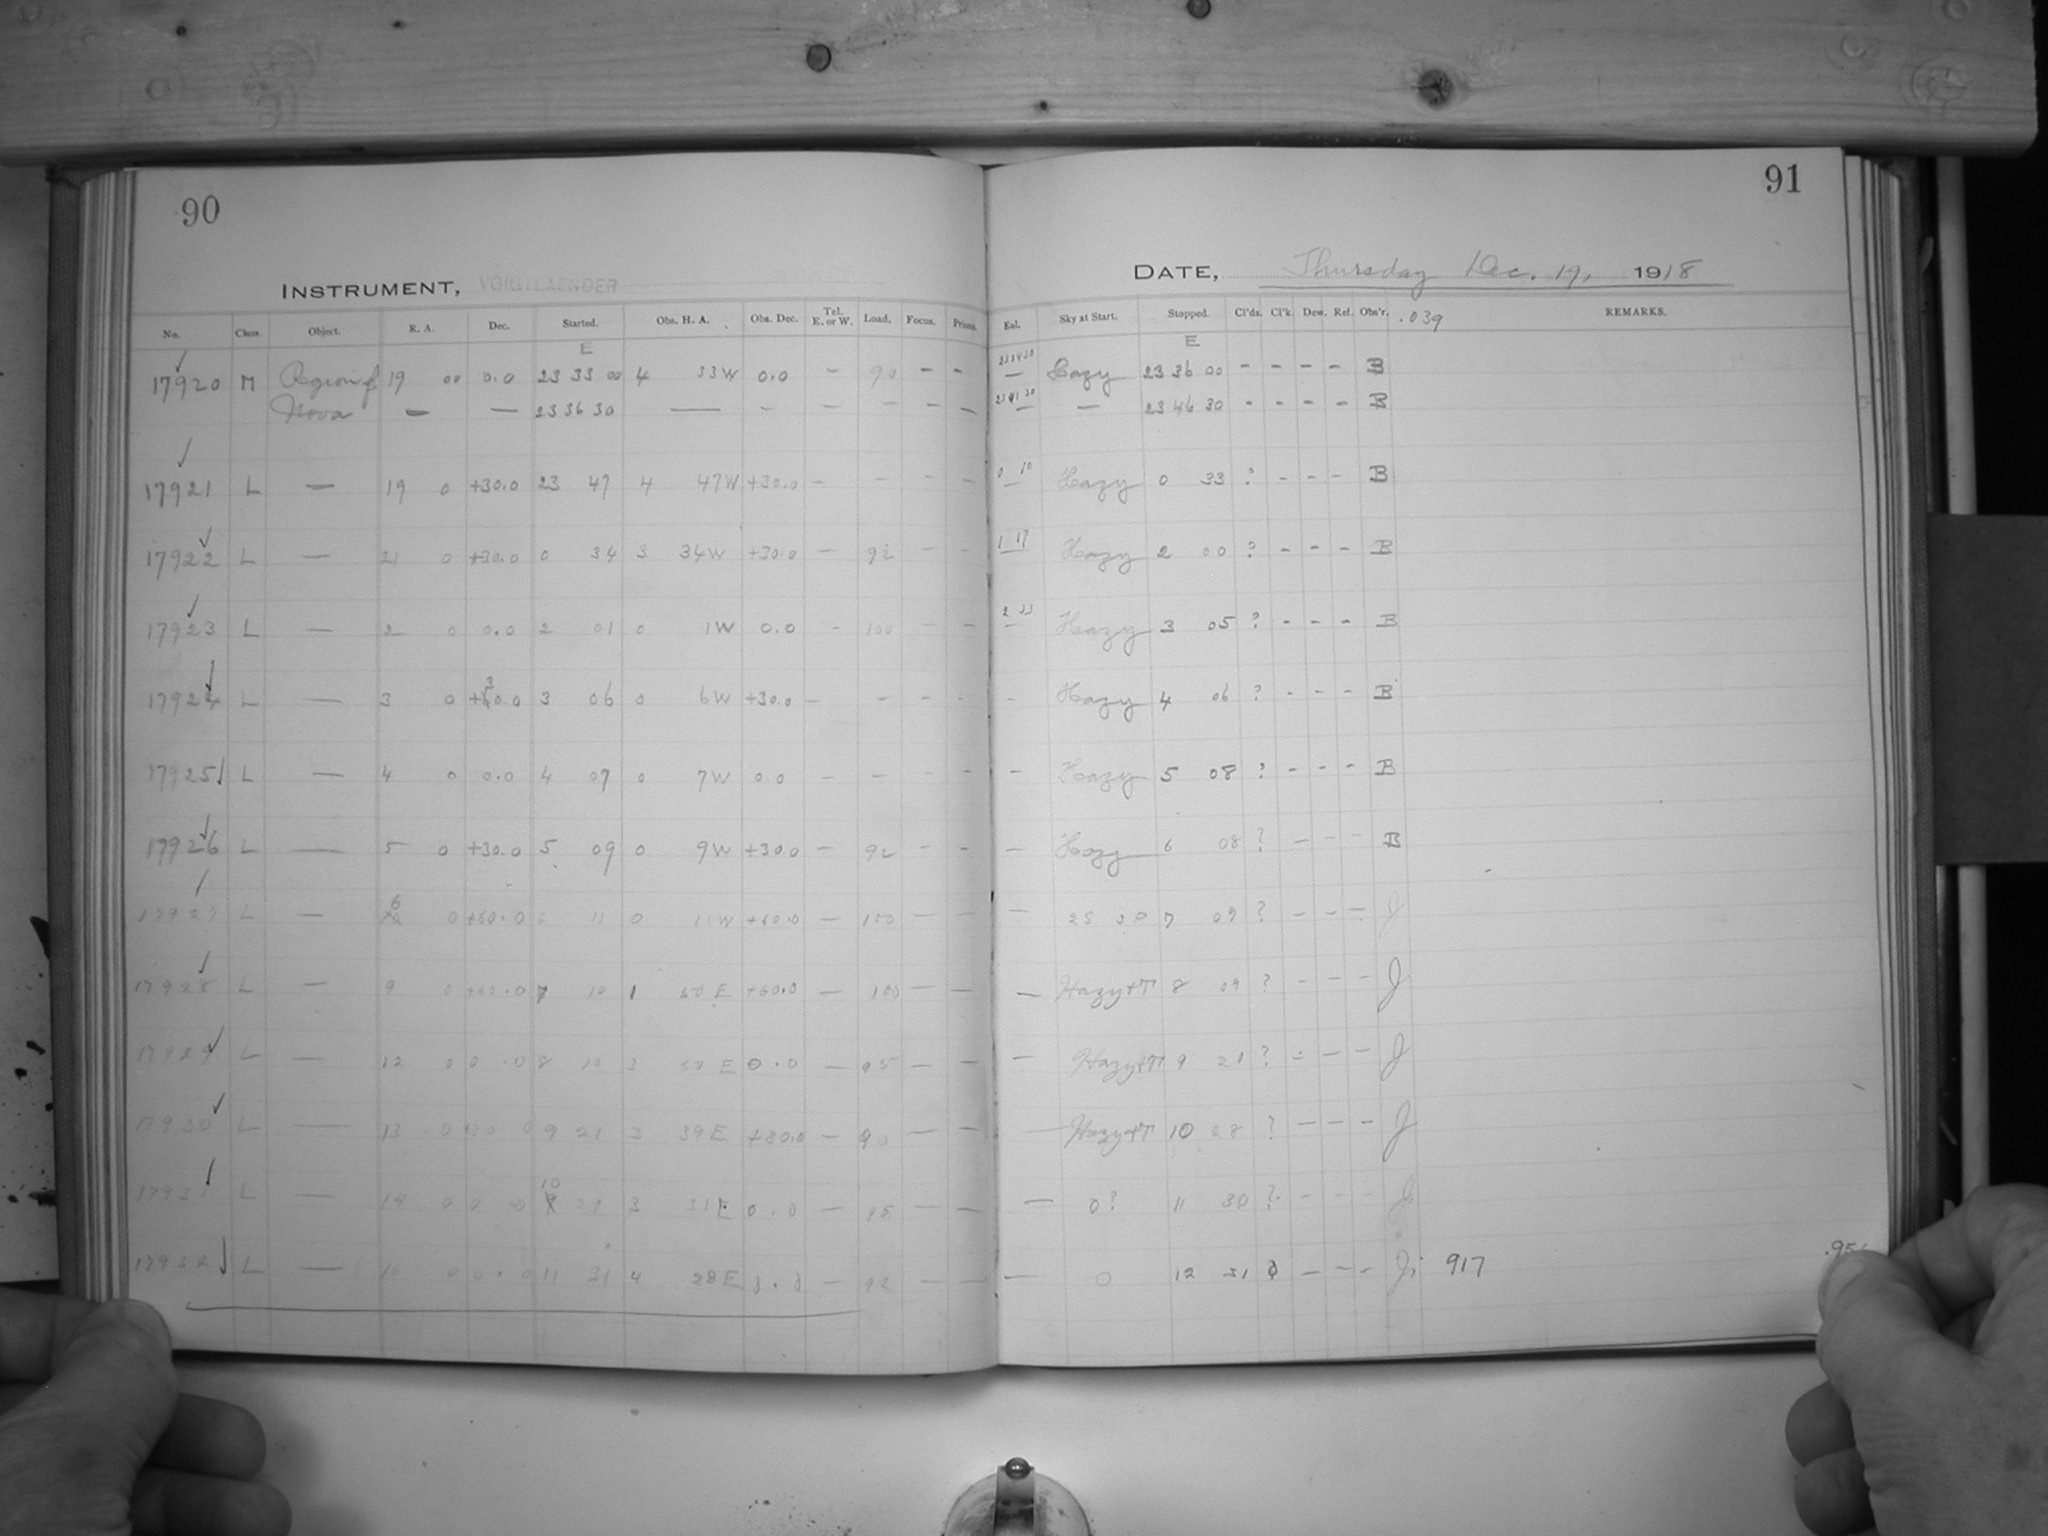 90
INSTRUMENT, VOIGTLAENDER
No. Class. Object. R. A. Dec. Started. Obs. H. A. Obs. Dec. Tel. E. or W. Load. Focus. Prisms.
E
17920 M Region of 19 00 0.0 23 33 00 4 33W 0.0 - 90 - -
Nova — — 23 36 30 — - - - - -
17921 L — 19 0 +30.0 23 47 4 47W +30.0 - - - -
17922 L — 21 0 +30.0 0 34 3 34W +30.0 - 92 - -
17923 L — 2 0 0.0 2 01 0 1W 0.0 - 100 - -
17924 L — 3 0 +30.0 3 06 0 6W +30.0 - - - -
17925 L — 4 0 0.0 4 07 0 7W 0.0 - - - -
17926 L — 5 0 +30.0 5 09 0 9W +30.0 - 92 - -
17927 L — 6 0 +60.0 6 11 0 11W +60.0 - 100 - -
17928 L — 9 0 +60.0 7 10 1 50 E +60.0 — 100 — —
17929 L — 12 0 0.0 8 10 3 50 E 0.0 — 95 — —
17930 L — 13 0 +30.0 9 21 3 39E +30.0 — 90 — —
17931 L — 14 0 0.0 10 29 3 31E 0.0 — 95 — —
17932 L — 16 0 0.0 11 31 4 29E 0.0 — 92 — —
91
DATE, Thursday Dec. 19, 1918
Eal. Sky at Start. Stopped. Cl'ds. Cl'k. Dew. Ref. Obs'r. .039 REMARKS.
E
23 34 30 Hazy 23 36 00 - - - - B
23 41 30 — 23 46 30 - - - - B
0 10 Hazy 0 33 ? - - - B
1 17 Hazy 2 00 ? - - - B
2 33 Hazy 3 05 ? - - - B
- Hazy 4 06 ? - - - B
- Hazy 5 08 ? - - - B
— Hazy 6 08 ? - - - B
— 7 09 ? - - - J
— Hazy+T 8 09 ? - - - J
— Hazy+T 9 20 ? - - - J
— Hazy+T 10 28 ? - - - J
— 0? 11 30 ? - - - J
— 0 12 31 0 - - - J 917